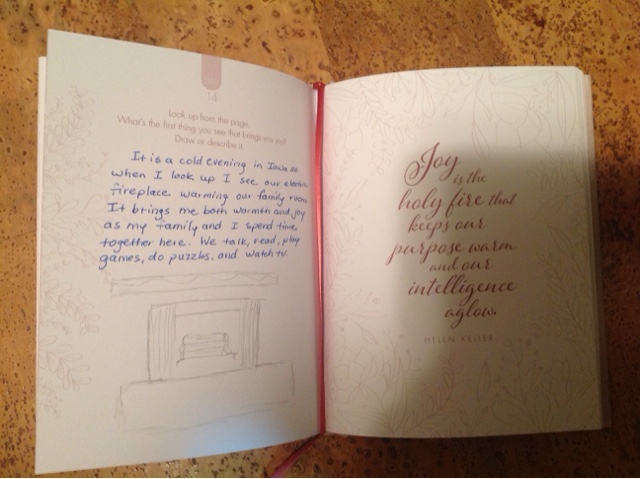 14
Look up from the page.
What's the first thing you see that brings you joy?
Draw or describe it.
It is a cold evening in Iowa so
when I look up I see our electric
fireplace warming our family room.
It brings me both warmth and joy
as my family and I spend time
together here. We talk, read, play
games, do puzzles, and watch tv.
Joy
is the
holy fire that
keeps our
purpose warm
and our
intelligence
aglow.
HELEN KELLER